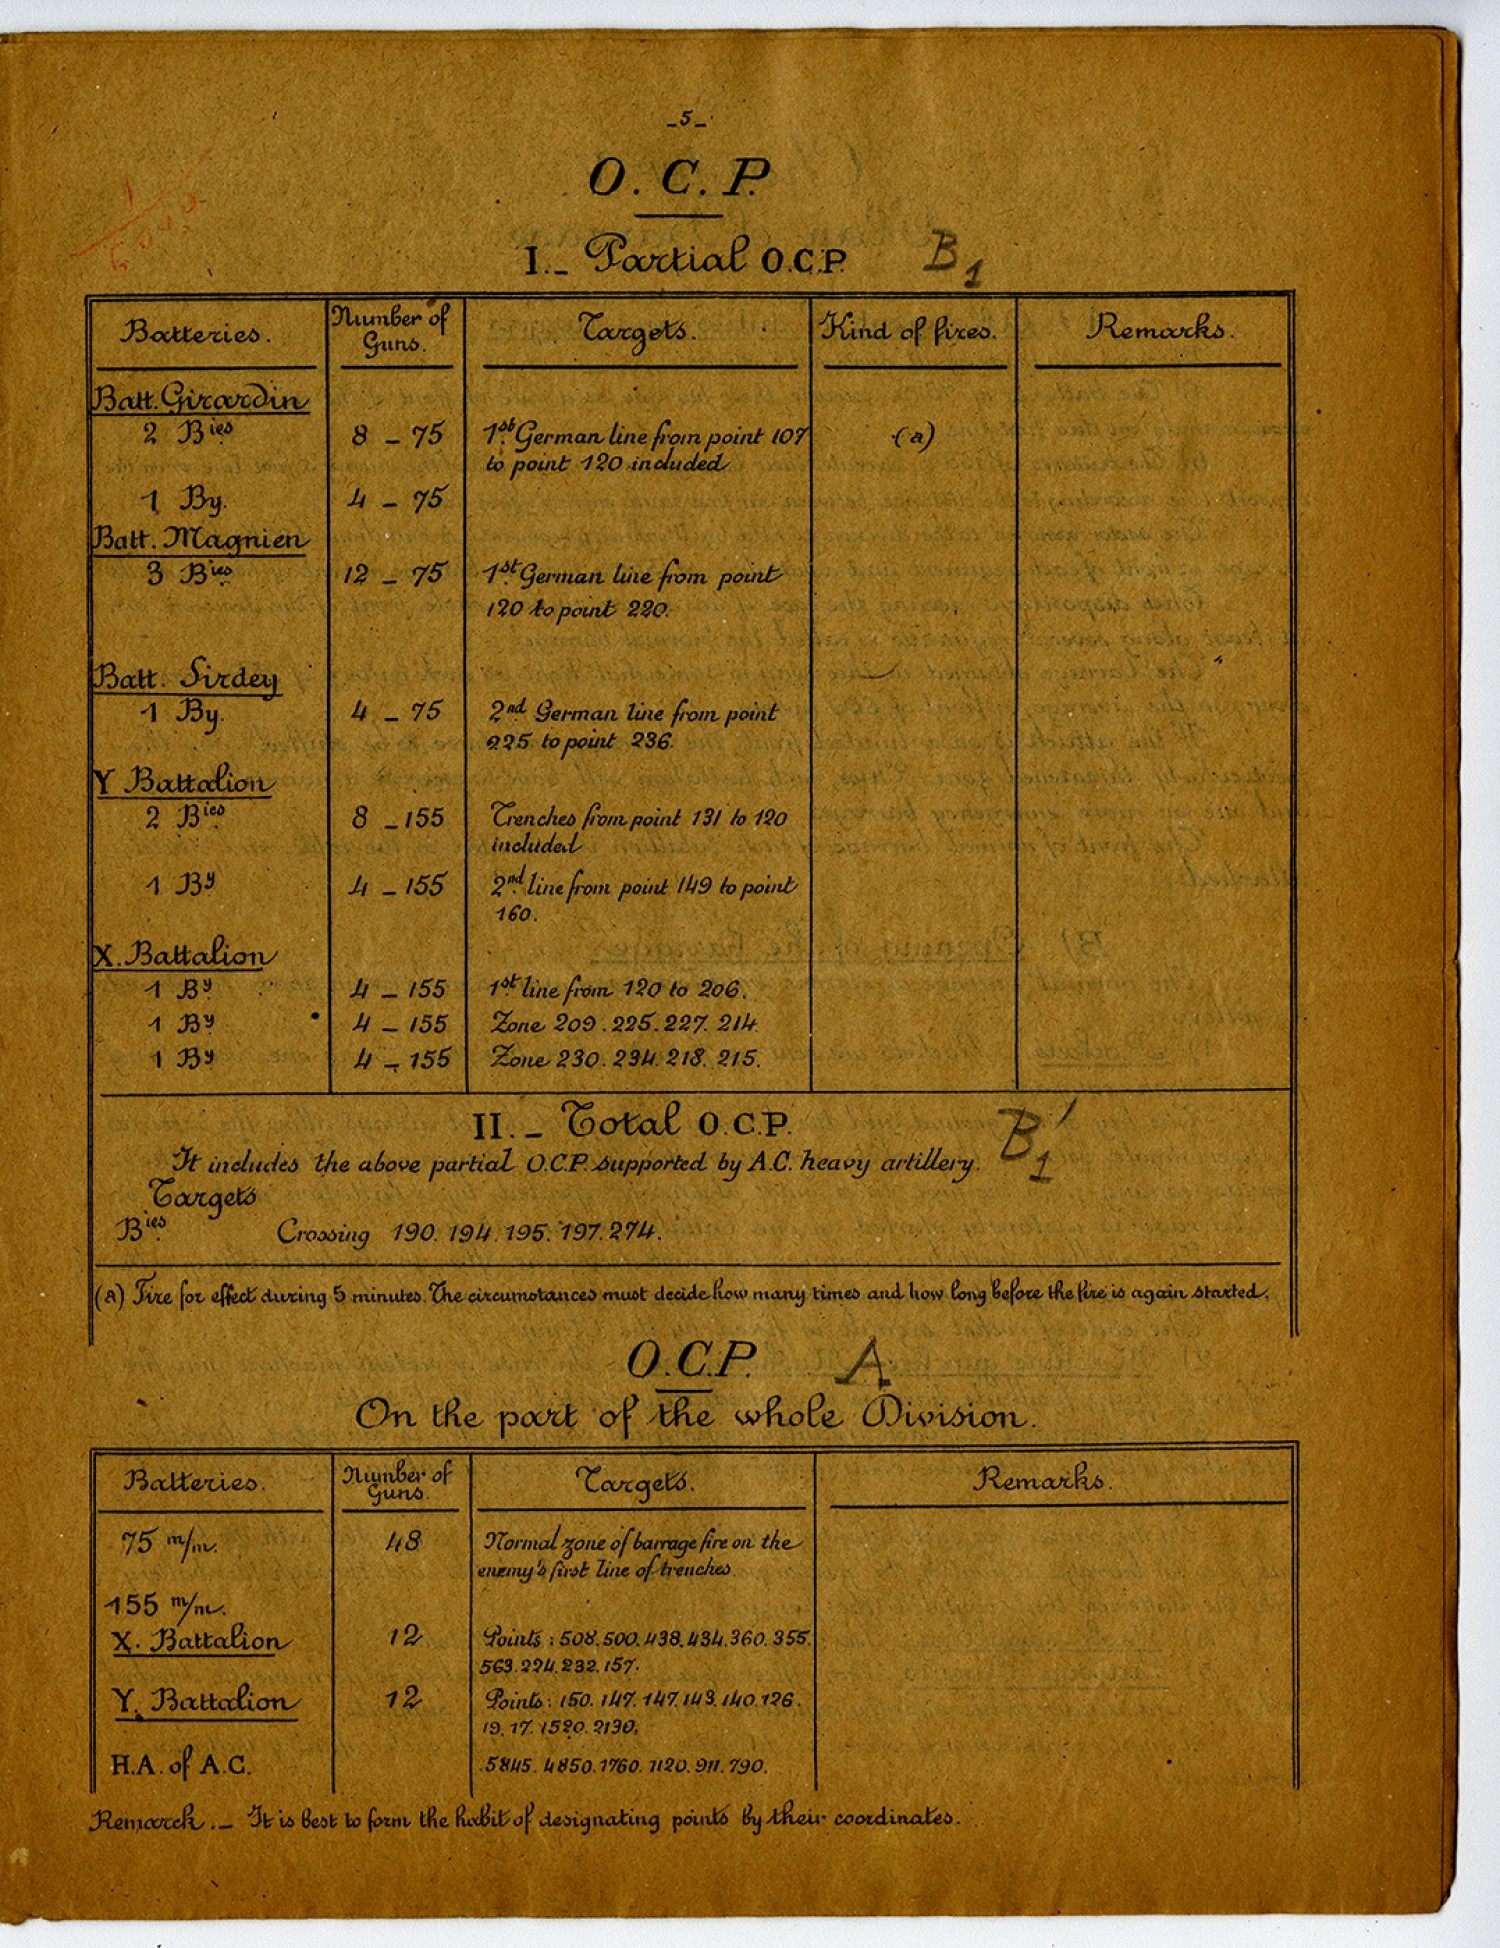 _5_
O.C.P.
I._ Partial O.C.P. B1
Batteries. Number of Guns. Targets. Kind of fires. Remarks.
Batt. Girardin
2 Bies 8 _ 75 1st German line from point 107 (a)
to point 120 included
1 By. 4 _ 75
Batt. Magnien
3 Bies 12 _ 75 1st German line from point
120 to point 220.
Batt. Sirdey
1 By. 4 _ 75 2nd German line from point
225 to point 236.
Y Battalion
2 Bies 8 _ 155 Trenches from point 131 to 120
included
1 By 4 _ 155 2nd line from point 149 to point
160.
X. Battalion
1 By 4 _ 155 1st line from 120 to 206.
1 By 4 _ 155 Zone 209. 225. 227. 214.
1 By 4 _ 155 Zone 230. 234. 218. 215.
II._ Total O.C.P. B'1
It includes the above partial O.C.P. supported by A.C. heavy artillery.
Targets
Bies Crossing 190. 194. 195. 197. 274.
(a) Fire for effect during 5 minutes. The circumstances must decide how many times and how long before the fire is again started.
O.C.P. A
On the part of the whole Division.
Batteries. Number of Guns. Targets. Remarks.
75 m/m. 48 Normal zone of barrage fire on the
enemy's first line of trenches.
155 m/m.
X. Battalion 12 Points : 508. 500. 438. 434. 360. 355.
563. 224. 232. 157.
Y. Battalion 12 Points : 150. 147. 147. 143. 140. 126.
19. 17. 1520. 2130.
H.A. of A.C. 5845. 4850. 1760. 1120. 911. 790.
Remarck._ It is best to form the habit of designating points by their coordinates.